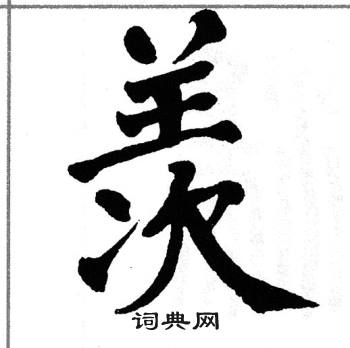 羡
词典网